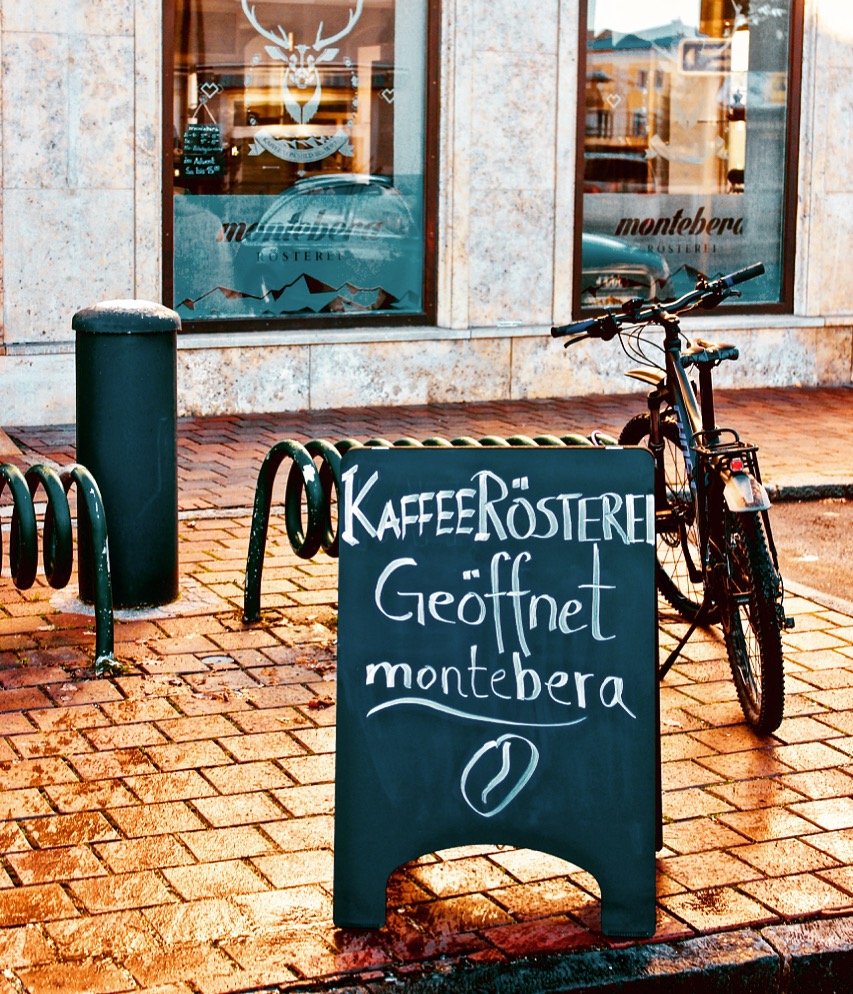 montebera
RÖSTEREI
montebera
RÖSTEREI
im Advent
KAFFEERÖSTEREI
Geöffnet
montebera